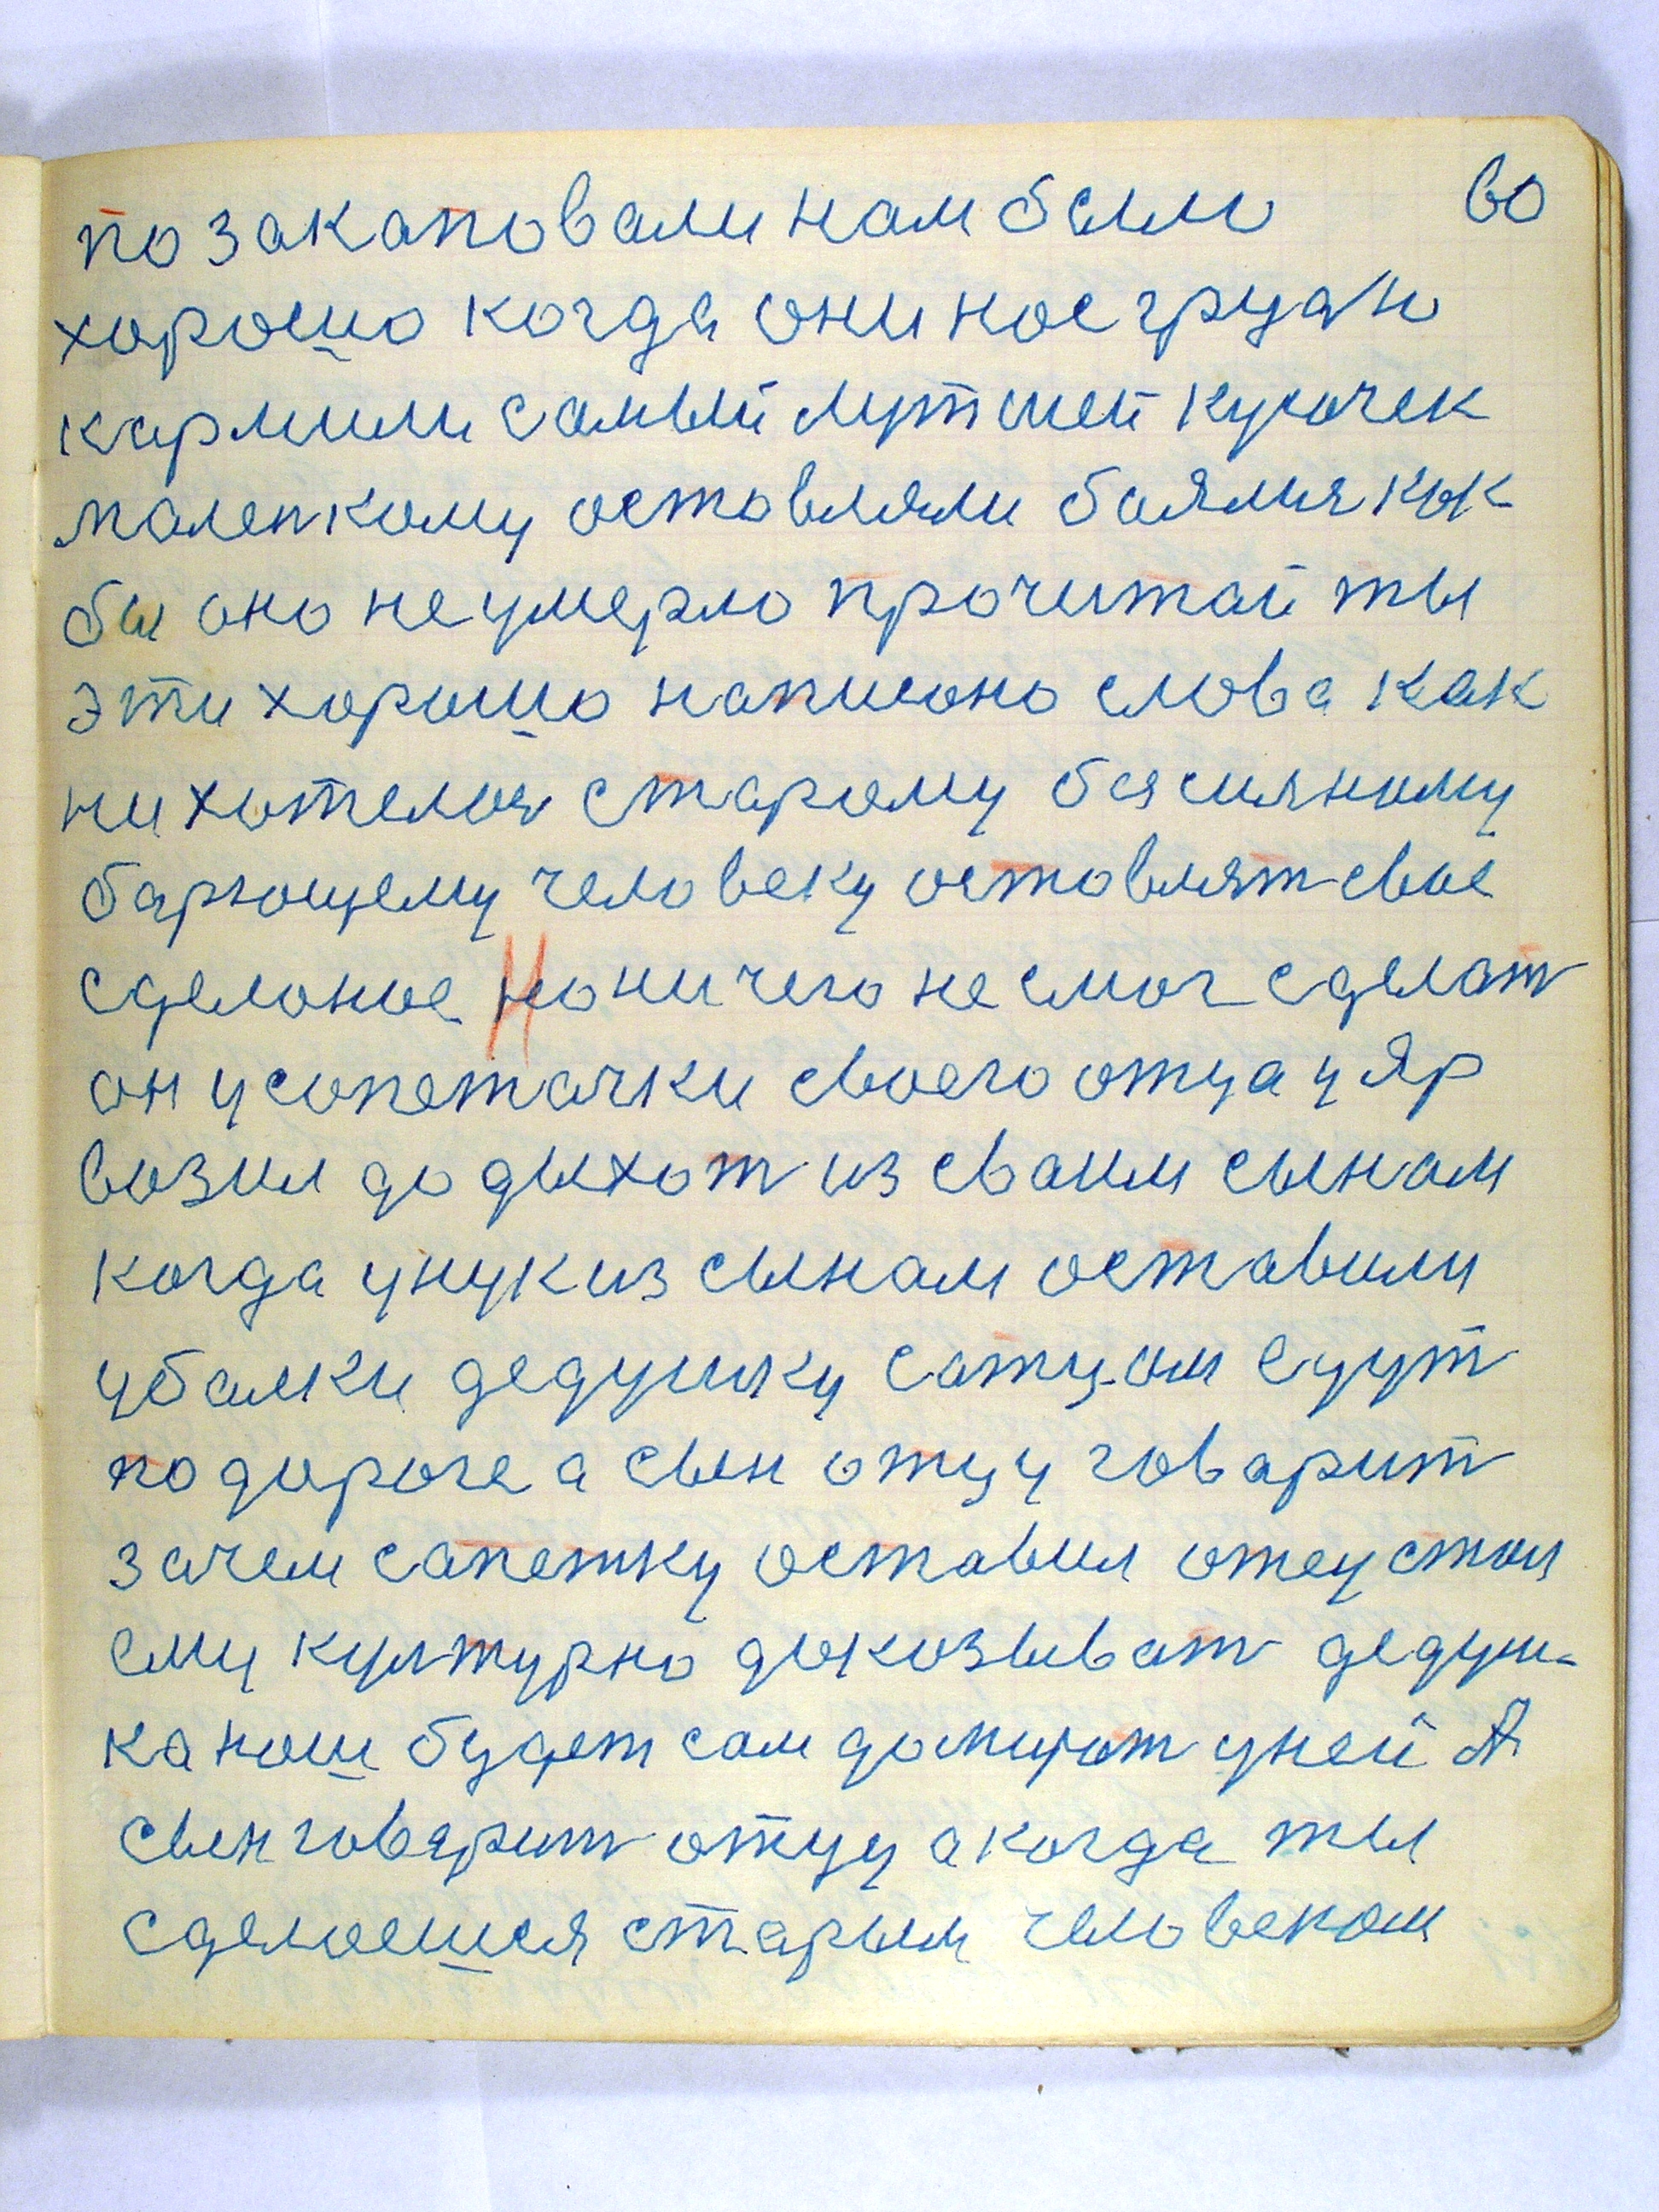 60
по закаповали нам было
хорошо когда они нас грудю
кармили самый лутшей кусочек
маленкому оставляли боялися как
бы оно не умерло прочитай ты
эти хорошо написано слова как
ни хотелося старому бясилному
барющему человеку оставлят свое
сделоное но ничего не смог сделат
он у сопетачки своего отца у Яр
возил до дыхат из сваим сынам
когда унук из сынам оставили
у балки дедушку сатцом едут
по дороге а сын отцу говарит
зачем сапетку оставил отец стал
ему културно докозыват дедуш-
ка наш будет сам дамират уней А
сын говарит отцу а когда ты
сделоешся старым человеком